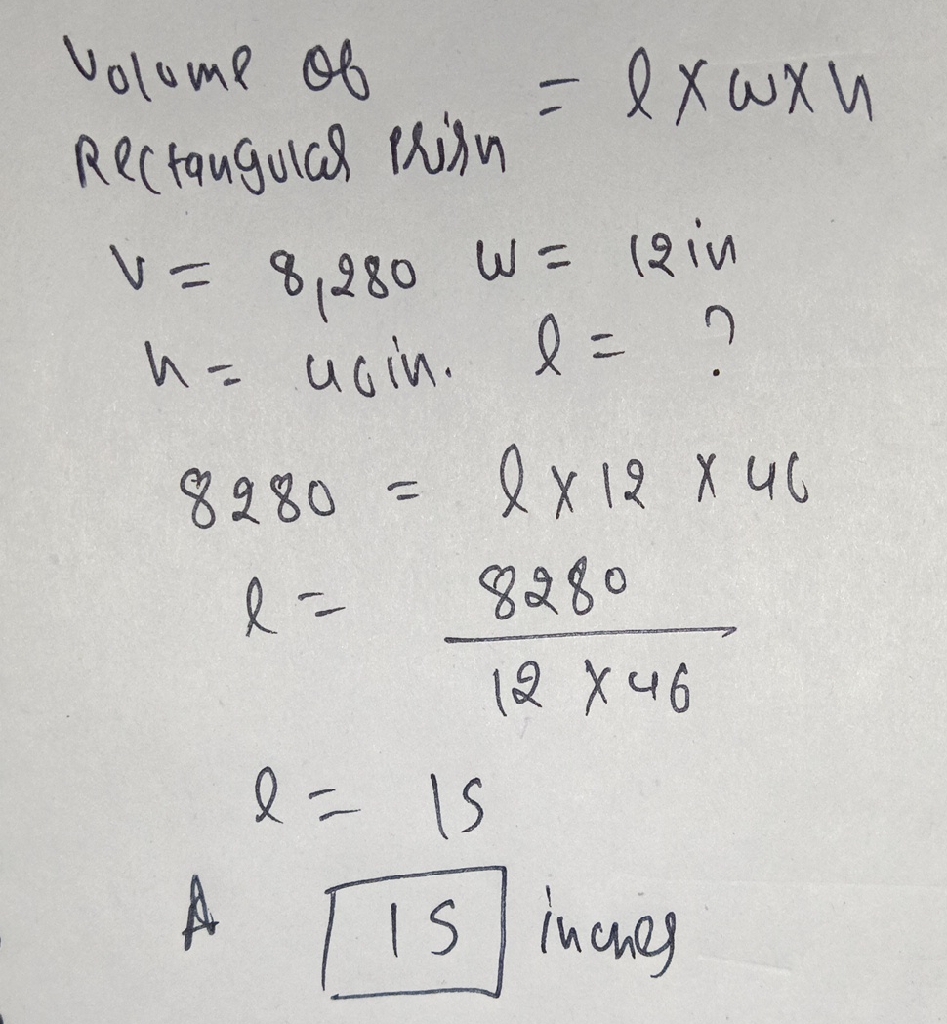 Volume of
Rectangular Prism = l X w X h
V = 8,280 W = 12in
h = 46in. l = ?
8280 = l X 12 X 46
l = 8280
12 X 46
l = 15
A 15 inches